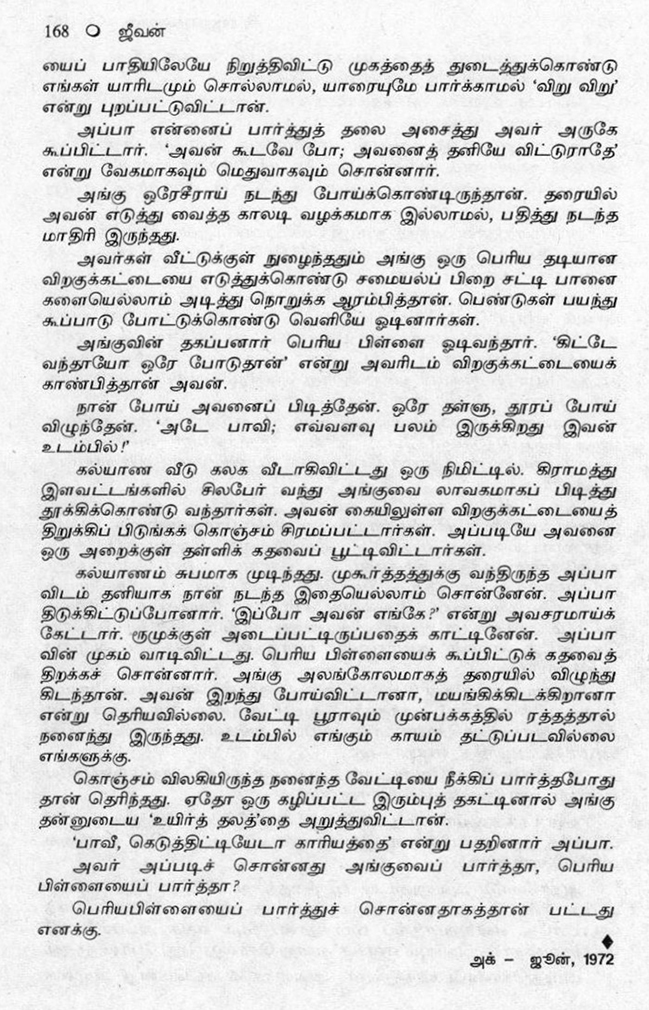 168 ○ ஜீவன்
யைப் பாதியிலேயே நிறுத்திவிட்டு முகத்தைத் துடைத்துக்கொண்டு
எங்கள் யாரிடமும் சொல்லாமல், யாரையுமே பார்க்காமல் ‘விறு விறு’
என்று புறப்பட்டுவிட்டான்.
அப்பா என்னைப் பார்த்துத் தலை அசைத்து அவர் அருகே
கூப்பிட்டார். ‘அவன் கூடவே போ; அவனைத் தனியே விட்டுராதே’
என்று வேகமாகவும் மெதுவாகவும் சொன்னார்.
அங்கு ஒரேசீராய் நடந்து போய்க்கொண்டிருந்தான். தரையில்
அவன் எடுத்து வைத்த காலடி வழக்கமாக இல்லாமல், பதித்து நடந்த
மாதிரி இருந்தது.
அவர்கள் வீட்டுக்குள் நுழைந்ததும் அங்கு ஒரு பெரிய தடியான
விறகுக்கட்டையை எடுத்துக்கொண்டு சமையல்ப் பிறை சட்டி பானை
களையெல்லாம் அடித்து நொறுக்க ஆரம்பித்தான். பெண்டுகள் பயந்து
கூப்பாடு போட்டுக்கொண்டு வெளியே ஓடினார்கள்.
அங்குவின் தகப்பனார் பெரிய பிள்ளை ஓடிவந்தார். ‘கிட்டே
வந்தாயோ ஒரே போடுதான்’ என்று அவரிடம் விறகுக்கட்டையைக்
காண்பித்தான் அவன்.
நான் போய் அவனைப் பிடித்தேன். ஒரே தள்ளு, தூரப் போய்
விழுந்தேன். ‘அடே பாவி; எவ்வளவு பலம் இருக்கிறது இவன்
உடம்பில்!’
கல்யாண வீடு கலக வீடாகிவிட்டது ஒரு நிமிட்டில். கிராமத்து
இளவட்டங்களில் சிலபேர் வந்து அங்குவை லாவகமாகப் பிடித்து
தூக்கிக்கொண்டு வந்தார்கள். அவன் கையிலுள்ள விறகுக்கட்டையைத்
திறுக்கிப் பிடுங்கக் கொஞ்சம் சிரமப்பட்டார்கள். அப்படியே அவனை
ஒரு அறைக்குள் தள்ளிக் கதவைப் பூட்டிவிட்டார்கள்.
கல்யாணம் சுபமாக முடிந்தது. முகூர்த்தத்துக்கு வந்திருந்த அப்பா
விடம் தனியாக நான் நடந்த இதையெல்லாம் சொன்னேன். அப்பா
திடுக்கிட்டுப்போனார். ‘இப்போ அவன் எங்கே?’ என்று அவசரமாய்க்
கேட்டார். ரூமுக்குள் அடைப்பட்டிருப்பதைக் காட்டினேன். அப்பா
வின் முகம் வாடிவிட்டது. பெரிய பிள்ளையைக் கூப்பிட்டுக் கதவைத்
திறக்கச் சொன்னார். அங்கு அலங்கோலமாகத் தரையில் விழுந்து
கிடந்தான். அவன் இறந்து போய்விட்டானா, மயங்கிக்கிடக்கிறானா
என்று தெரியவில்லை. வேட்டி பூராவும் முன்பக்கத்தில் ரத்தத்தால்
நனைந்து இருந்தது. உடம்பில் எங்கும் காயம் தட்டுப்படவில்லை
எங்களுக்கு.
கொஞ்சம் விலகியிருந்த நனைந்த வேட்டியை நீக்கிப் பார்த்தபோது
தான் தெரிந்தது. ஏதோ ஒரு கழிப்பட்ட இரும்புத் தகட்டினால் அங்கு
தன்னுடைய ‘உயிர்த் தலத்’தை அறுத்துவிட்டான்.
‘பாவீ, கெடுத்திட்டியேடா காரியத்தை’ என்று பதறினார் அப்பா.
அவர் அப்படிச் சொன்னது அங்குவைப் பார்த்தா, பெரிய
பிள்ளையைப் பார்த்தா?
பெரியபிள்ளையைப் பார்த்துச் சொன்னதாகத்தான் பட்டது
எனக்கு.
◆
அக் – ஜூன், 1972